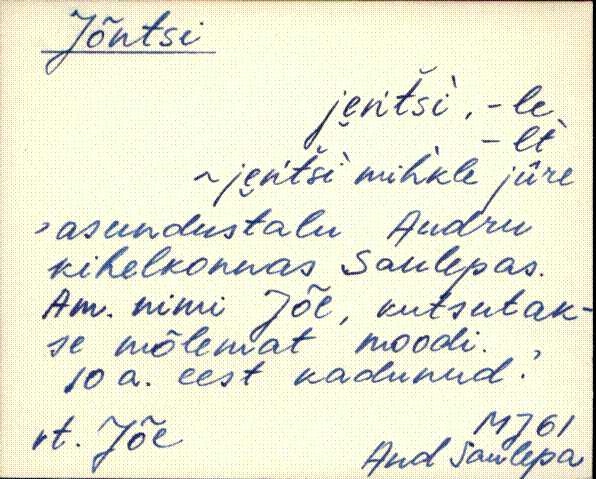 Jõntsi
je̮ńťši̬, -le
-lt
~ je̮ńťši mihkle jüre
›asundustalu Audru
kihelkonnas Saulepas.
Am. nimi Jõe, kutsutak-
se mõlemat moodi.
10 a. eest kadunud.›
vt. Jõe
MJ61
Aud Saulepa